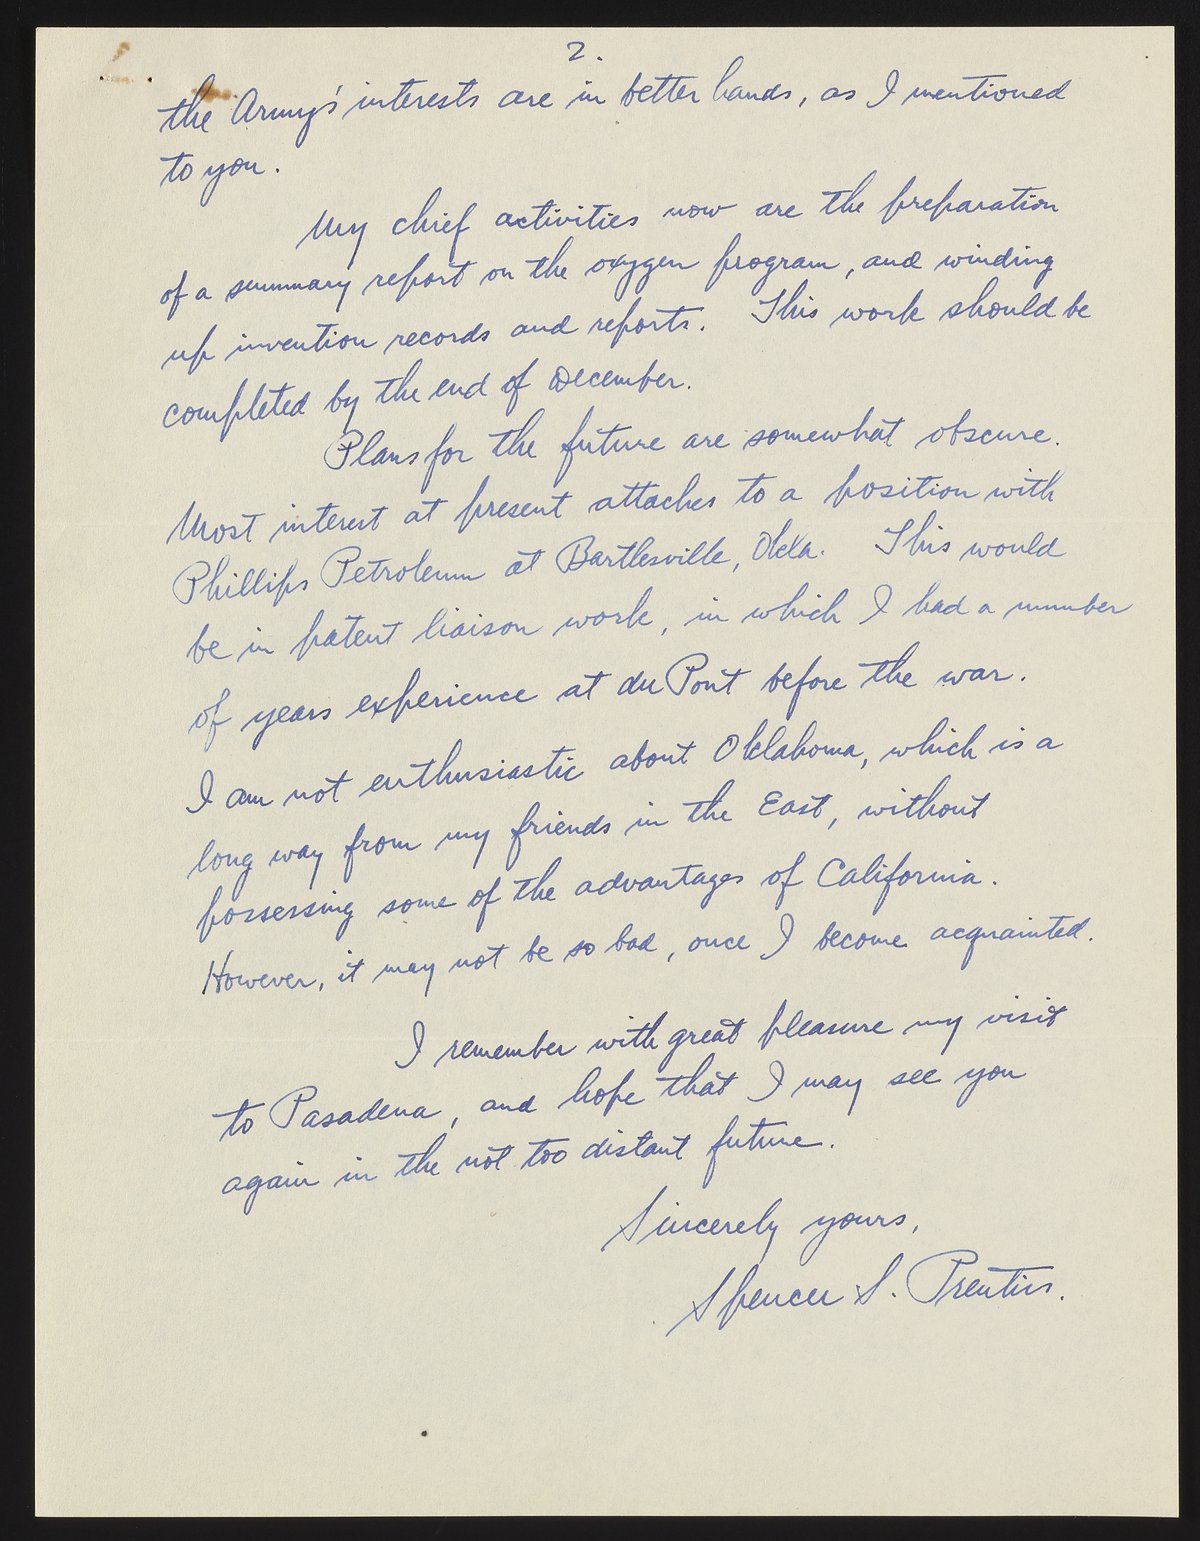 2.
the Army's interests are in better hands, as I mentioned
to you.
My chief activities now are the preparation
of a summary report on the oxygen program, and winding
up invention records and reports. This work should be
completed by the end of December.
Plans for the future are somewhat obscure.
Most interest at present attaches to a position with
Phillips Petroleum at Bartlesville, Okla. This would
be in patent liaison work, in which I had a number
of years experience at du Pont before the war.
I am not enthusiastic about Oklahoma, which is a
long way from my friends in the East, without
possessing some of the advantages of California.
However, it may not be so bad, once I become acquainted.
I remember with great pleasure my visit
to Pasadena, and hope that I may see you
again in the not too distant future.
Sincerely yours,
Spencer S. Prentiss.